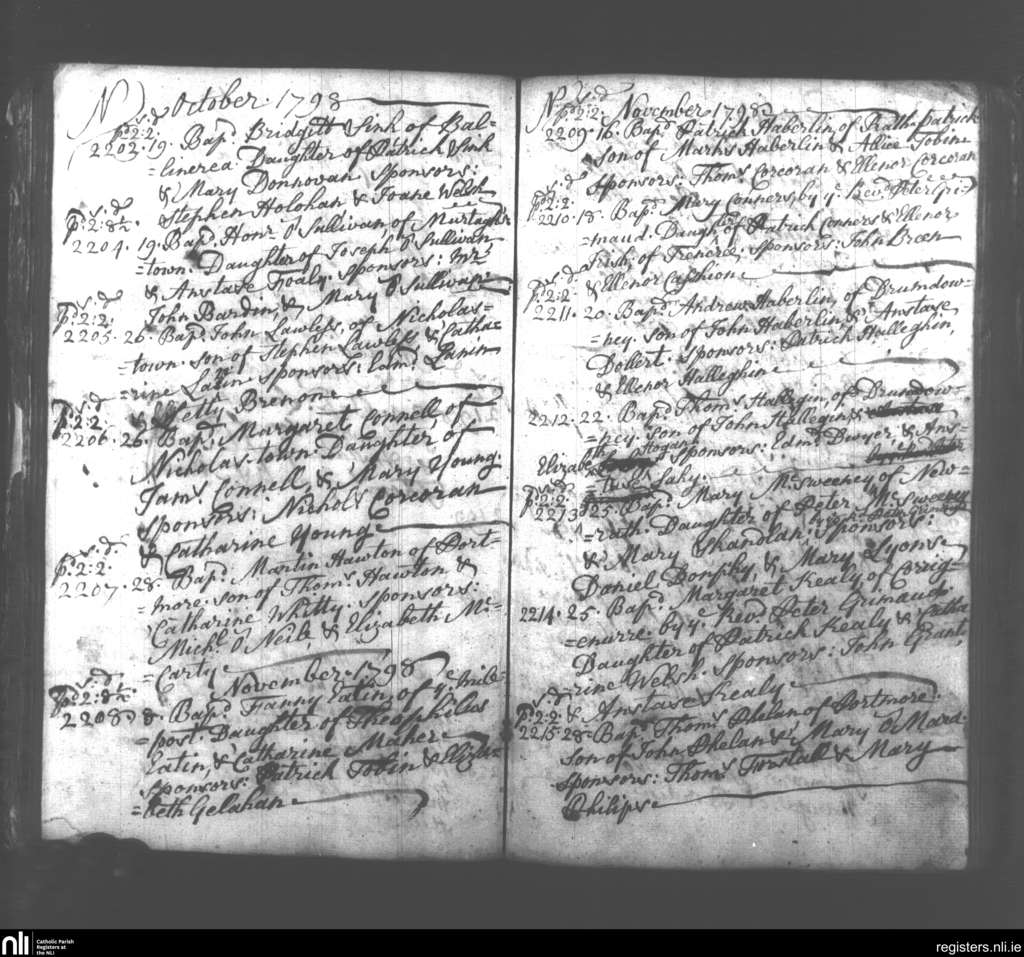 N October. 1798
s. d
pd 2:2.
2203. 19. Bapd. Bridgett Sink of Bal=
=linerea. Daughter of Patrick Sink
& Mary Donnovan Sponsors:
Stephen Holohan & Joane Welsh
s. d
pd. 2:8½
2204. 19. Bapd. Honr. O Sullivan, of Murtaghs
=town. Daughter of Joseph O Sullivan
& Anstase Foaly. Sponsors: Mr
John Bardin, & Mary O Sullivan
s. d
pd. 2:2.
2205. 26. Bapd. John Lawless, of Nicholas=
=town. son of Stephen Lawless & Catha=
=rine Lanin sponsors: Edmd. Lanin
& Betty Brenone
s. d
pd. 2:2.
2206. 26. Bapd. Margaret Connell, of
Nicholas-town. Daughter of
Jams. Connell & Mary Young.
sponsors: Nichols Corcoran
& Catharine Young
s. d.
pd. 2:2.
2207. 28. Bapd. Martin Hawton of Port=
=more. son of Thoms. Hawton &
Catharine Whitty. sponsors:
Michl. O Neile, & Elizabeth Mc=
=Carty
November. 1798
s. d.
pd. 2:8½
2208. 8. Bapd. Fanny Eatin, of ye. mile=
=post. Daughter of Theophilus
Eatin, & Catharine Maher
sponsors: Patrick Tobin & Eliza=
=beth Gelahan
N November. 1798
s. d
pd 2:2.
2209. 16. Bapd. Patrick Haberlin, of Rath-patrick
son of Marks Haberlin & Alice Tobin
sponsors: Thoms. Corcoran & Ellenor Corcoran
s. d
pd. 2:2.
2210. 18. Bapd. Mary Conners, by ye. Revd. Peter Gri=
=maud. Daughtr. of Patrick Conners & Ellenor
Irish, of Frenerd, sponsors: John Breen
& Ellenor Cashion
s. d.
pd. 2:2
2211. 20. Bapd. Andrew Haberlin, of Drumdow=
=ney. son of John Haberlin, & Anstase
Dobert. sponsors: Patrick Halleghin,
& Ellenor Halleghin
2212. 22. Bapd. Thoms. Hallegin, of Drumdow=
=ney. son of John Hallegin &
Elizabeth Hogan sponsors: Edmd. Dwyer & Ans=
=tase Fahy.
s. d
pd. 2:2.
2213. 25. Bapd. Mary McSweeney of New=
=rath. Daughter of Peter McSweeney
& Mary Shanolan, by ye. Revd. Peter Grimaud
Sponsors:
Daniel Bonshy, & Mary Lyons.
2214. 25. Bapd. Margaret Kealy, of Corrig=
=enurre. by ye. Revd. Peter Grimaud.
Daughter of Patrick Kealy & Catha=
=rine Welsh. Sponsors: John Grant,
& Anstase Kealy
s. d.
pd. 2:2
2215. 28. Bapd. Thoms. Phelan of Portmore.
son of John Phelan & Mary O Mara.
sponsors: Thoms. Tunstall & Mary
Philips
nli
Catholic Parish
Registers at
the NLI
registers.nli.ie